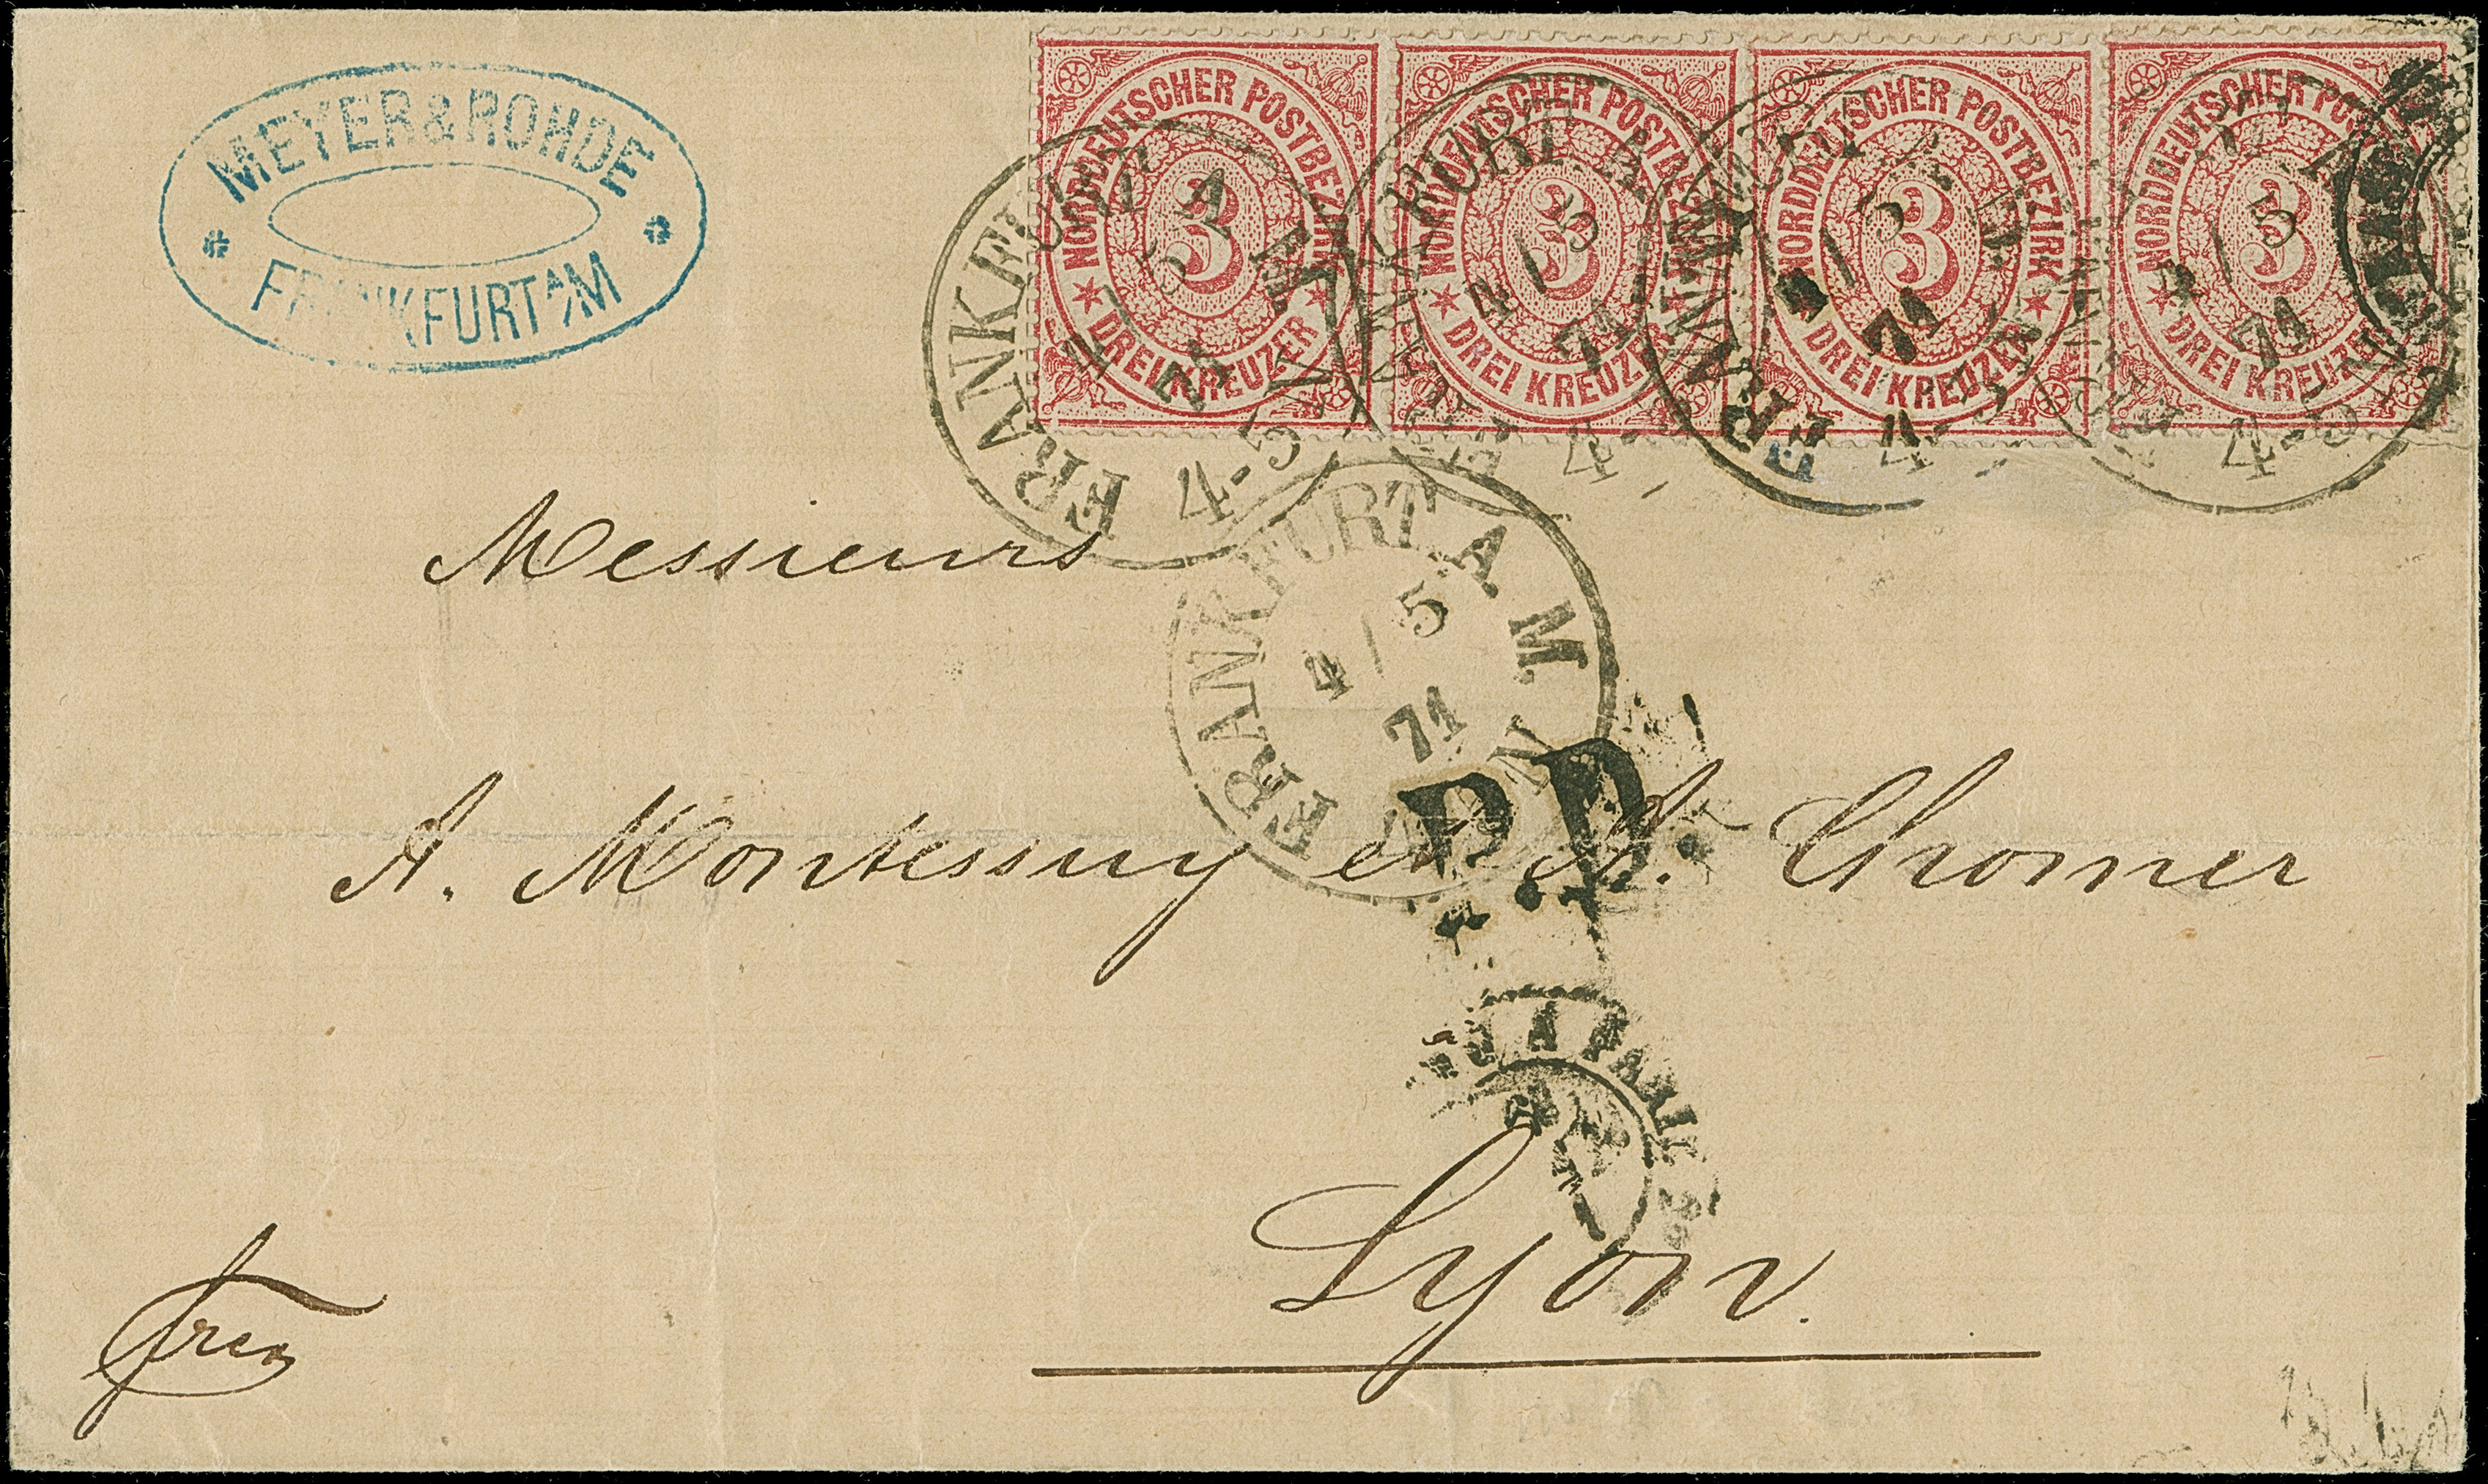 MEYER & ROHDE
FRANKFURT A/M
NORDDEUTSCHER POSTBEZIRK
3
DREI KREUZER
NORDDEUTSCHER POSTBEZIRK
3
DREI KREUZER
NORDDEUTSCHER POSTBEZIRK
3
DREI KREUZER
NORDDEUTSCHER POSTBEZIRK
3
DREI KREUZER
FRANKFURT A
4-5
4/5
71
4
4/5
71
4-5
4/5
71
4-5
Messieurs
FRANKFURT A M
4/5
71
P.D.
A. Montessuy et A. Chomer
A PARIS
Lyon.